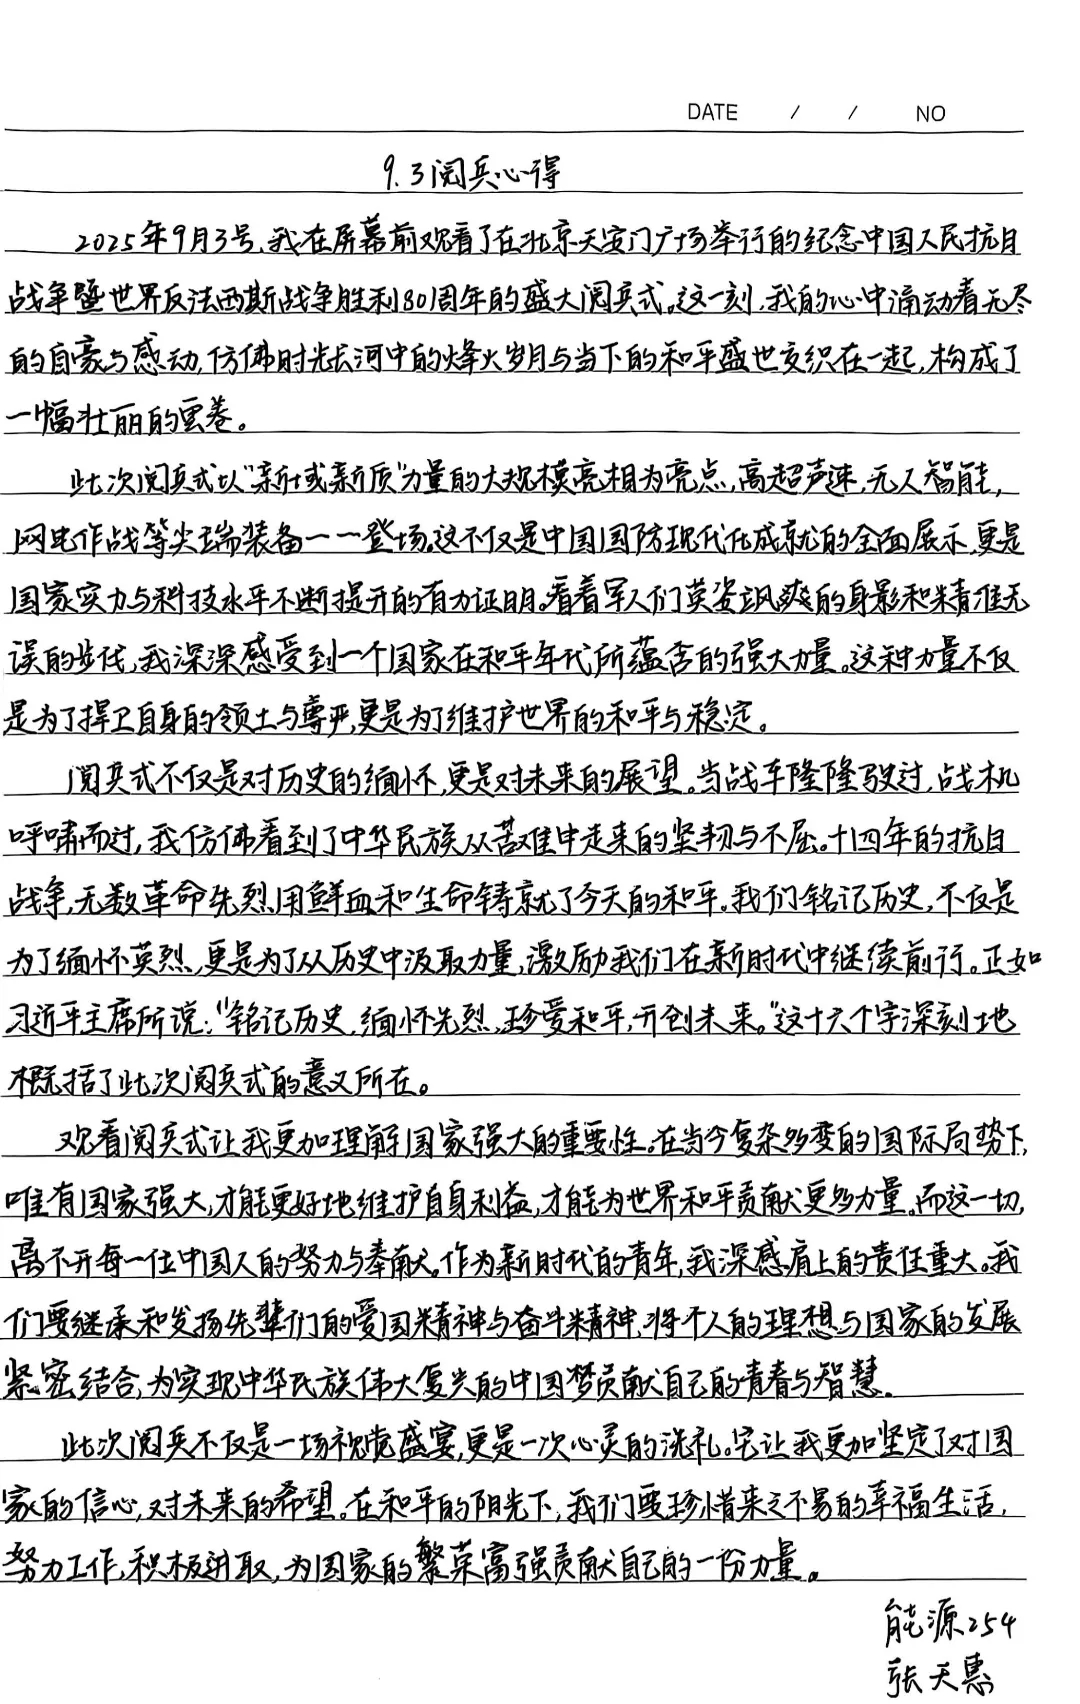 DATE / / NO
9.3阅兵心得
2025年9月3号,我在屏幕前观看了在北京天安门广场举行的纪念中国人民抗日
战争暨世界反法西斯战争胜利80周年的盛大阅兵式。这一刻,我的心中涌动着无尽
的自豪与感动,仿佛时光长河中的烽火岁月与当下的和平盛世交织在一起,构成了
一幅壮丽的画卷。
此次阅兵式以"新域新质"力量的大规模亮相为亮点,高超声速,无人智能,
网电作战等尖端装备一一登场。这不仅是中国国防现代化成就的全面展示,更是
国家实力与科技水平不断提升的有力证明。看着军人们英姿飒爽的身影和精准无
误的步伐,我深深感受到一个国家在和平年代所蕴含的强大力量。这种力量不仅
是为了捍卫自身的领土与尊严,更是为了维护世界的和平与稳定。
阅兵式不仅是对历史的缅怀,更是对未来的展望。当战车隆隆驶过,战机
呼啸而过,我仿佛看到了中华民族从苦难中走来的坚韧与不屈。十四年的抗日
战争,无数革命先烈用鲜血和生命铸就了今天的和平。我们铭记历史,不仅是
为了缅怀英烈,更是为了从历史中汲取力量,激励我们在新时代中继续前行。正如
习近平主席所说:"铭记历史,缅怀先烈,珍爱和平,开创未来。"这十六个字深刻地
概括了此次阅兵式的意义所在。
观看阅兵式让我更加理解国家强大的重要性。在当今复杂多变的国际局势下,
唯有国家强大,才能更好地维护自身利益,才能为世界和平贡献更多力量。而这一切,
离不开每一位中国人的努力与奉献。作为新时代的青年,我深感肩上的责任重大。我
们要继承和发扬先辈们的爱国精神与奋斗精神,将个人的理想与国家的发展
紧密结合,为实现中华民族伟大复兴的中国梦贡献自己的青春与智慧。
此次阅兵不仅是一场视觉盛宴,更是一次心灵的洗礼。它让我更加坚定了对国
家的信心,对未来的希望。在和平的阳光下,我们要珍惜来之不易的幸福生活,
努力工作,积极进取,为国家的繁荣富强贡献自己的一份力量。
能源254
张天惠